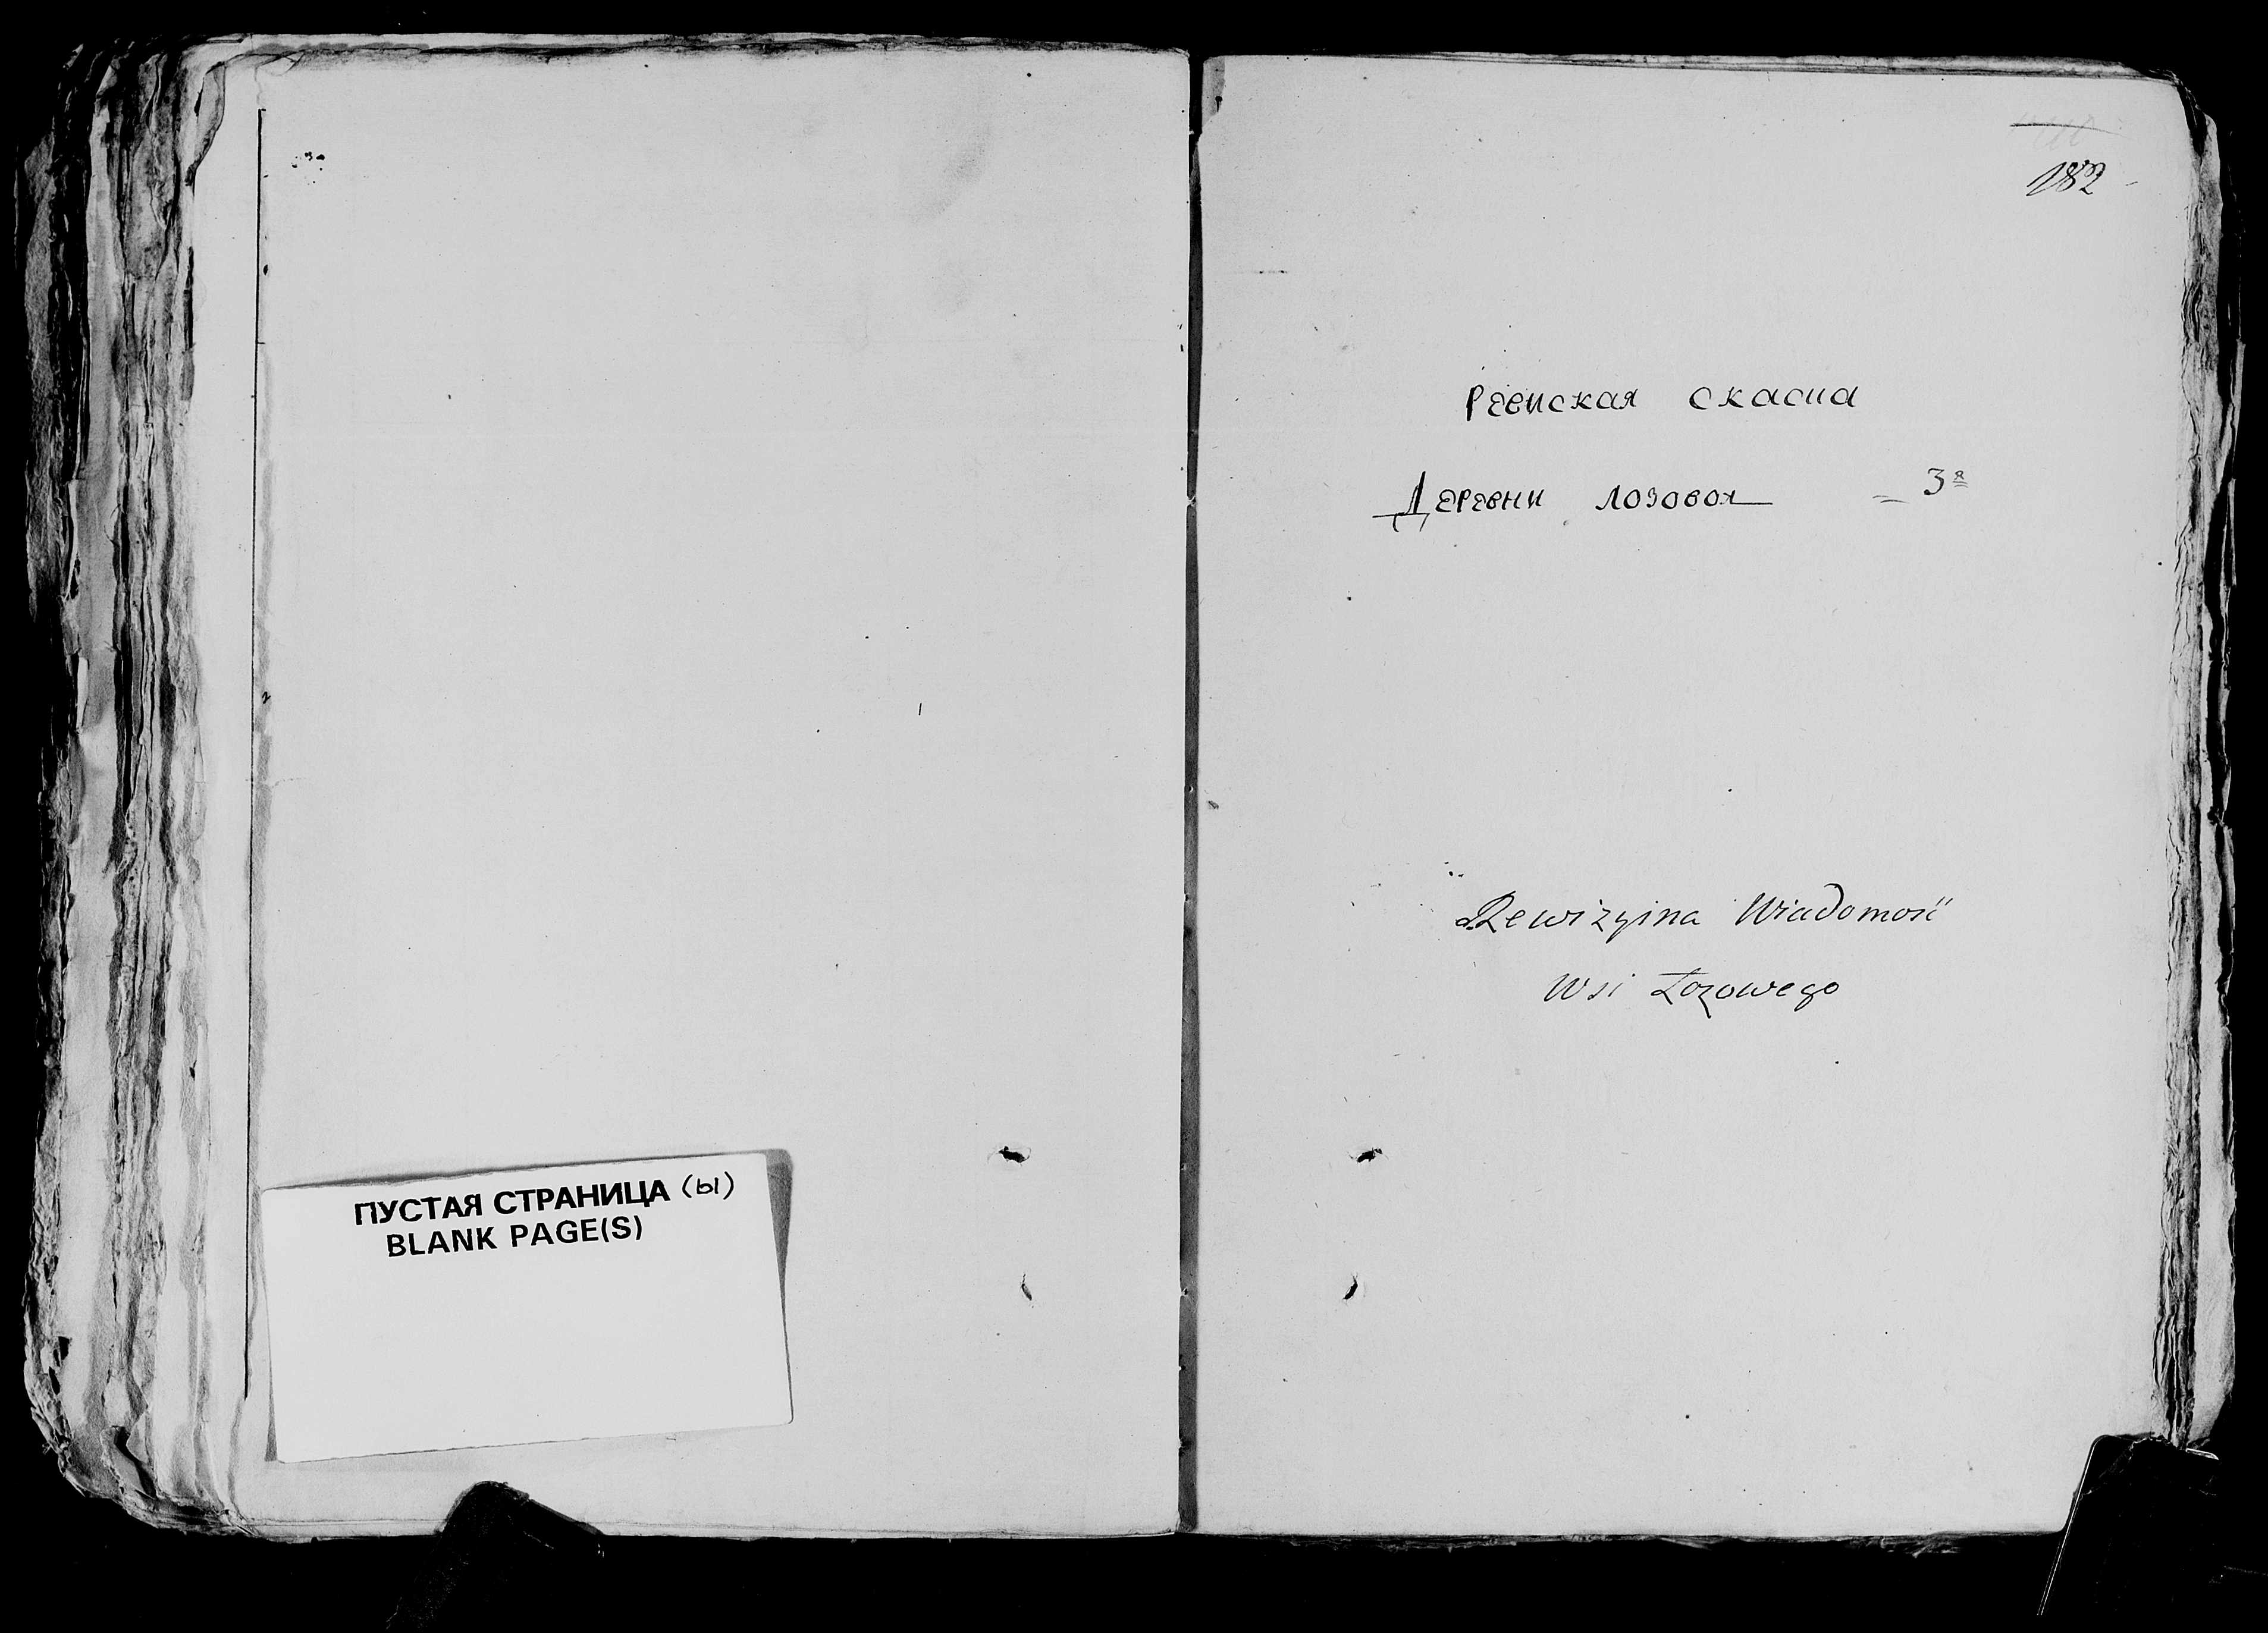 ПУСТАЯ СТРАНИЦА (ы)
BLANK PAGE(S)
182
Ревиская скаска
Деревни лозовоя = 3я
Rewizyina Wiadomość
Wsi Łozowego